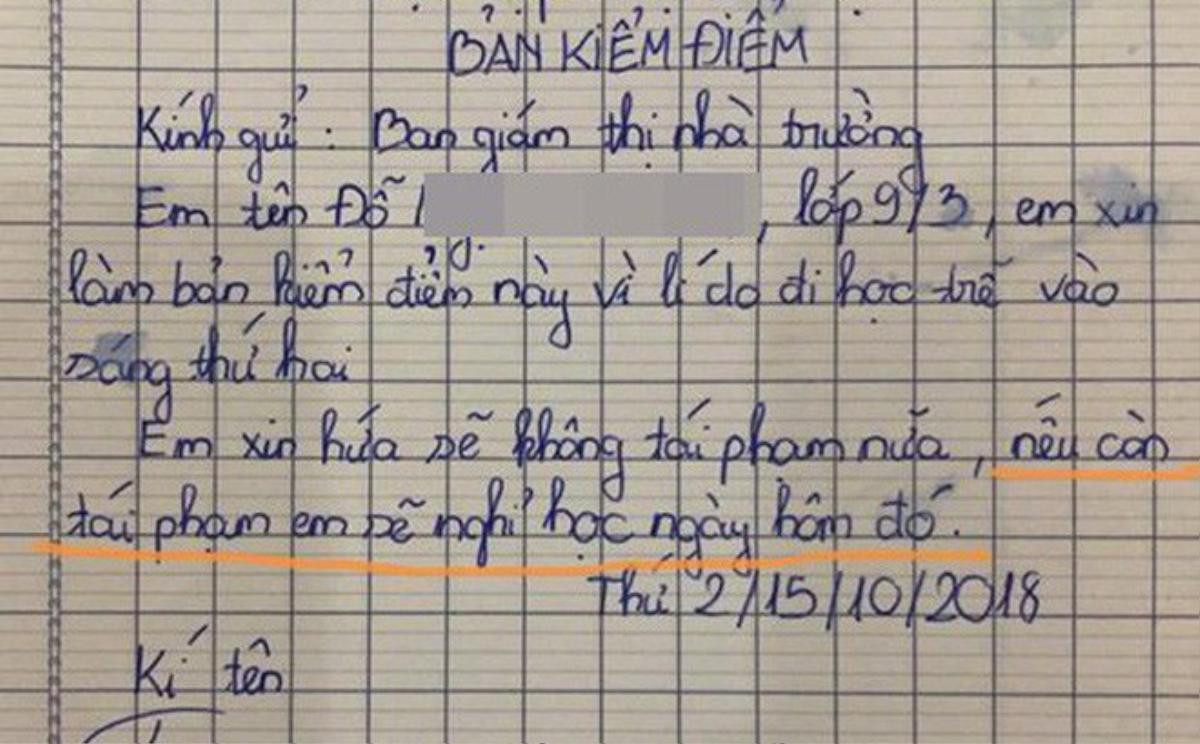 BẢN KIỂM ĐIỂM
Kính gửi : Ban giám thị nhà trường
Em tên Đỗ , lớp 9/3, em xin
làm bản kiểm điểm này vì lí do đi học trễ vào
sáng thứ hai
Em xin hứa sẽ không tái phạm nữa, nếu còn
tái phạm em sẽ nghỉ học ngày hôm đó.
Thứ 2/15/10/2018
Kí tên